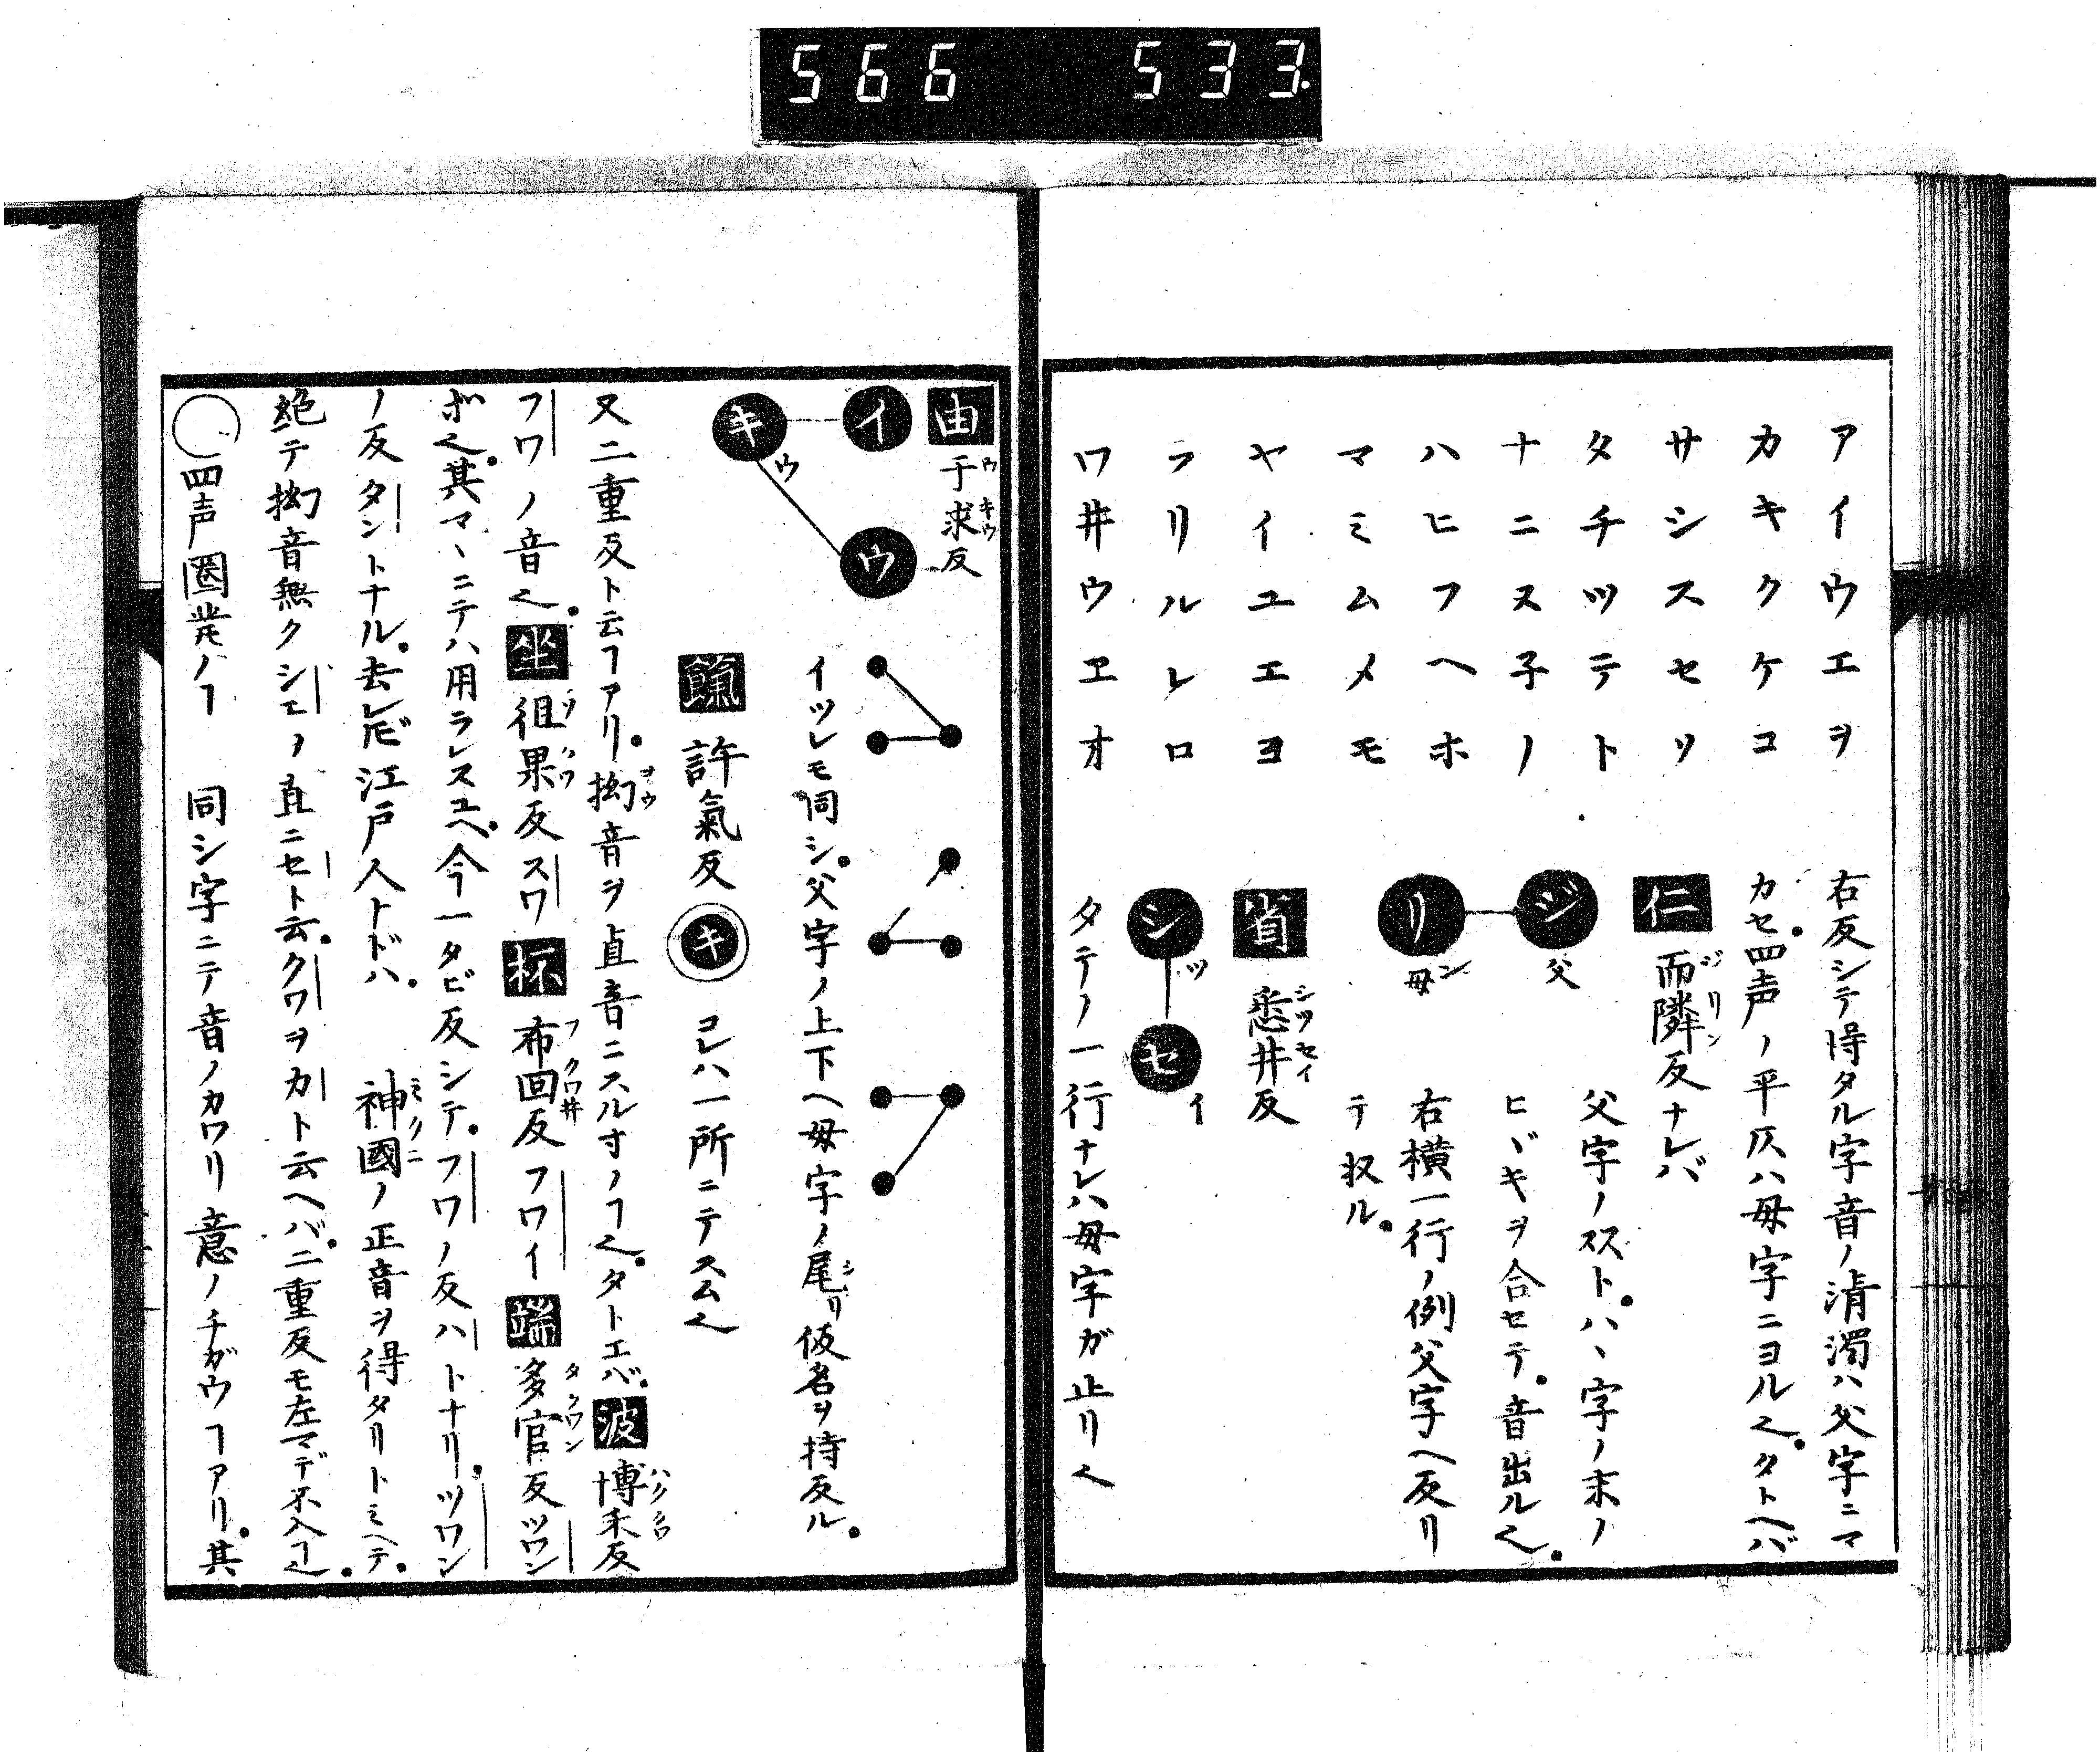 566 533.
アイウエヲ
カキクケコ
サシスセソ
タチツテト
ナニヌ子ノ
ハヒフヘホ
マミムメモ
ヤイユエヨ
ラリルレロ
ワ井ウヱオ
右反シテ得タル字音ノ清濁ハ父字ニマ
カセ。四声ノ平仄ハ母字ニヨル也。タトヘバ
仁 而隣反ナレバ
ジリン
ジ 父
リ ン 母
父字ノスヱト。ハヽ字ノ末ノ
ヒヾキヲ合セテ。音出ル也。
右横一行ノ例父字ヘ反リ
テ収ル。
省 悉井反
シツセイ
シ ツ
セ イ
タテノ一行ナレハ母字ガ止リ也
由 于求反
ウ キウ
イ
キ ウ
ウ
イツレモ同シ。父字ノ上下ヘ母字ノ尾リ仮名ヲ持反ル。
シ
餼 許氣反 キ コレハ一所ニテスム也
又二重反ト云ヿアリ。拗音ヲ直音ニスル寸ノヿ也。タトエバ。波 博禾反
ヨウ ハク クワ
フワノ音也。坐 徂果反スワ 杯 布回反フワイ 端 多官反ツワン
ソ クワ フ クワ井 タ クワン
ボ也。其マヽニテハ用ラレスユヘ。今一タビ反シテ。フワノ反ハトナリ。ツワン
ノ反タントナル。去レ𪜈江戸人トドハ。 神國ノ正音ヲ得タリトミヘテ。
ミクニ
絶テ拗音無クシエノ直ニセト云。クワヲカト云ヘバ。二重反モ左マデ不入ヿ也。
○四声圏発ノヿ 同シ字ニテ音ノカワリ意ノチガウヿアリ。其